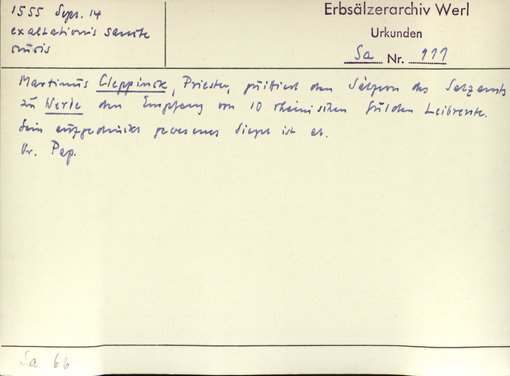 1555 Sept. 14
exaltationis sancte
crucis
Erbsälzerarchiv Werl
Urkunden
Sa Nr. 111
Martinus Cleppinck, Priester, quittiert den Sälzern des Salzamts
zu Werle den Empfang von 10 rheinischen Gulden Leibrente.
Sein aufgedrückt gewesenes Siegel ist ab.
Or. Pap.
Sa 66